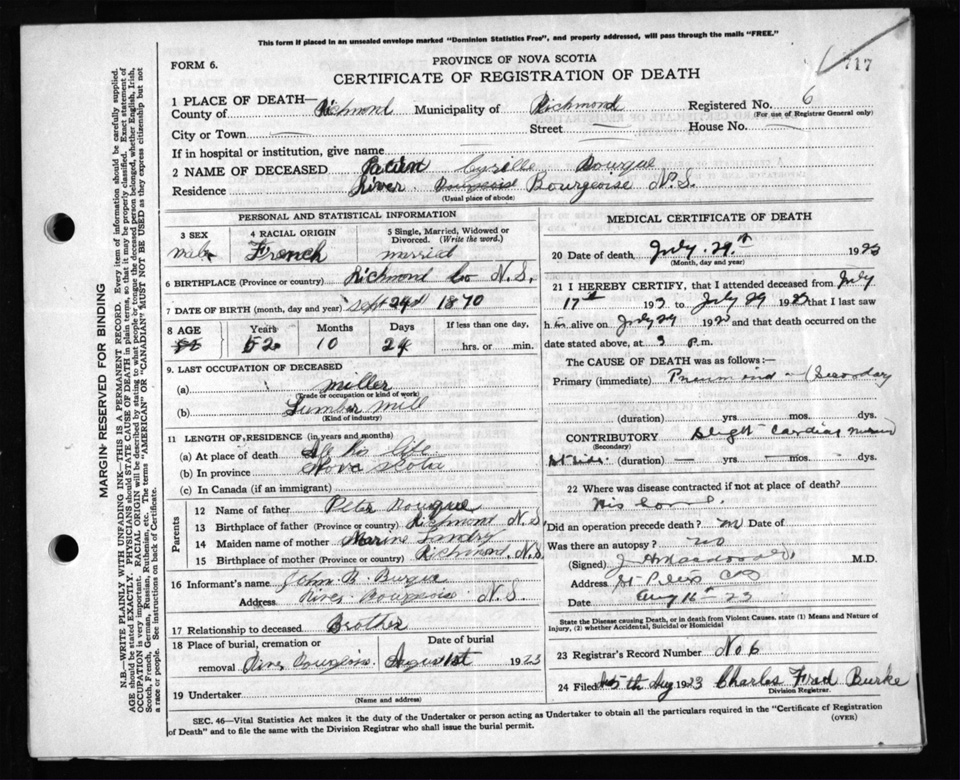 This form if placed in an unsealed envelope marked "Dominion Statistics Free", and properly addressed, will pass through the mails "FREE."
FORM 6.
PROVINCE OF NOVA SCOTIA
717
CERTIFICATE OF REGISTRATION OF DEATH
1 PLACE OF DEATH—
County of Richmond Municipality of Richmond Registered No. 6
(For use of Registrar General only)
City or Town Street House No.
If in hospital or institution, give name
2 NAME OF DECEASED Cyrille Bourque
Residence River Bourgeoise N.S.
(Usual place of abode)
PERSONAL AND STATISTICAL INFORMATION
3 SEX Male
4 RACIAL ORIGIN French
5 Single, Married, Widowed or Divorced. (Write the word.) married
6 BIRTHPLACE (Province or country) Richmond Co N.S.
7 DATE OF BIRTH (month, day and year) Sept 1870
8 AGE Years 52 Months 10 Days 29 If less than one day, hrs. or min.
9. LAST OCCUPATION OF DECEASED
(a) miller
(Trade or occupation or kind of work)
(b) Lumber mill
(Kind of industry)
11 LENGTH OF RESIDENCE (in years and months)
(a) At place of death All his life
(b) In province Nova Scotia
(c) In Canada (if an immigrant)
Parents
12 Name of father Peter Bourque
13 Birthplace of father (Province or country) Richmond N.S.
14 Maiden name of mother Landry
15 Birthplace of mother (Province or country) Richmond, N.S.
16 Informant's name John B.
Address River Bourgeois N.S.
17 Relationship to deceased Brother
18 Place of burial, cremation or removal River Bourgeois Date of burial August 1st 1923
19 Undertaker
(Name and address)
MEDICAL CERTIFICATE OF DEATH
20 Date of death July 29th 1923
(Month, day and year)
21 I HEREBY CERTIFY, that I attended deceased from July
17th 192 to July 29 1923 that I last saw
h alive on July 29 192 and that death occurred on the
date stated above, at 3 p.m.
The CAUSE OF DEATH was as follows:—
Primary (immediate) Pneumonia (Secondary
(duration) yrs. mos. dys.
CONTRIBUTORY Slight Cardiac
(Secondary)
(duration) yrs. mos. dys.
22 Where was disease contracted if not at place of death?
His
Did an operation precede death? no Date of
Was there an autopsy? no
(Signed) M.D.
Address St Peters CB
Date Aug 16th 23
State the Disease causing Death, or in death from Violent Causes. state (1) Means and Nature of Injury, (2) whether Accidental, Suicidal or Homicidal
23 Registrar's Record Number No 6
24 Filed 5th Aug 1923 Charles Fred Burke
Division Registrar.
SEC. 46—Vital Statistics Act makes it the duty of the Undertaker or person acting as Undertaker to obtain all the particulars required in the "Certificate of Registration
of Death" and to file the same with the Division Registrar who shall issue the burial permit.
(OVER)
MARGIN RESERVED FOR BINDING
N.B.—WRITE PLAINLY WITH UNFADING INK—THIS IS A PERMANENT RECORD. Every item of information should be carefully supplied.
AGE should be stated EXACTLY. PHYSICIANS should STATE CAUSE OF DEATH in plain terms, so that it may be properly classified. Exact statement of
OCCUPATION is very important. RACIAL ORIGIN will be described by stating to what people or tongue the deceased person belonged, whether English, Irish,
Scotch, French, German, Russian, Ruthenian, etc. The terms "AMERICAN" OR "CANADIAN" MUST NOT BE USED as they express citizenship but not
a race or people. See instructions on back of Certificate.